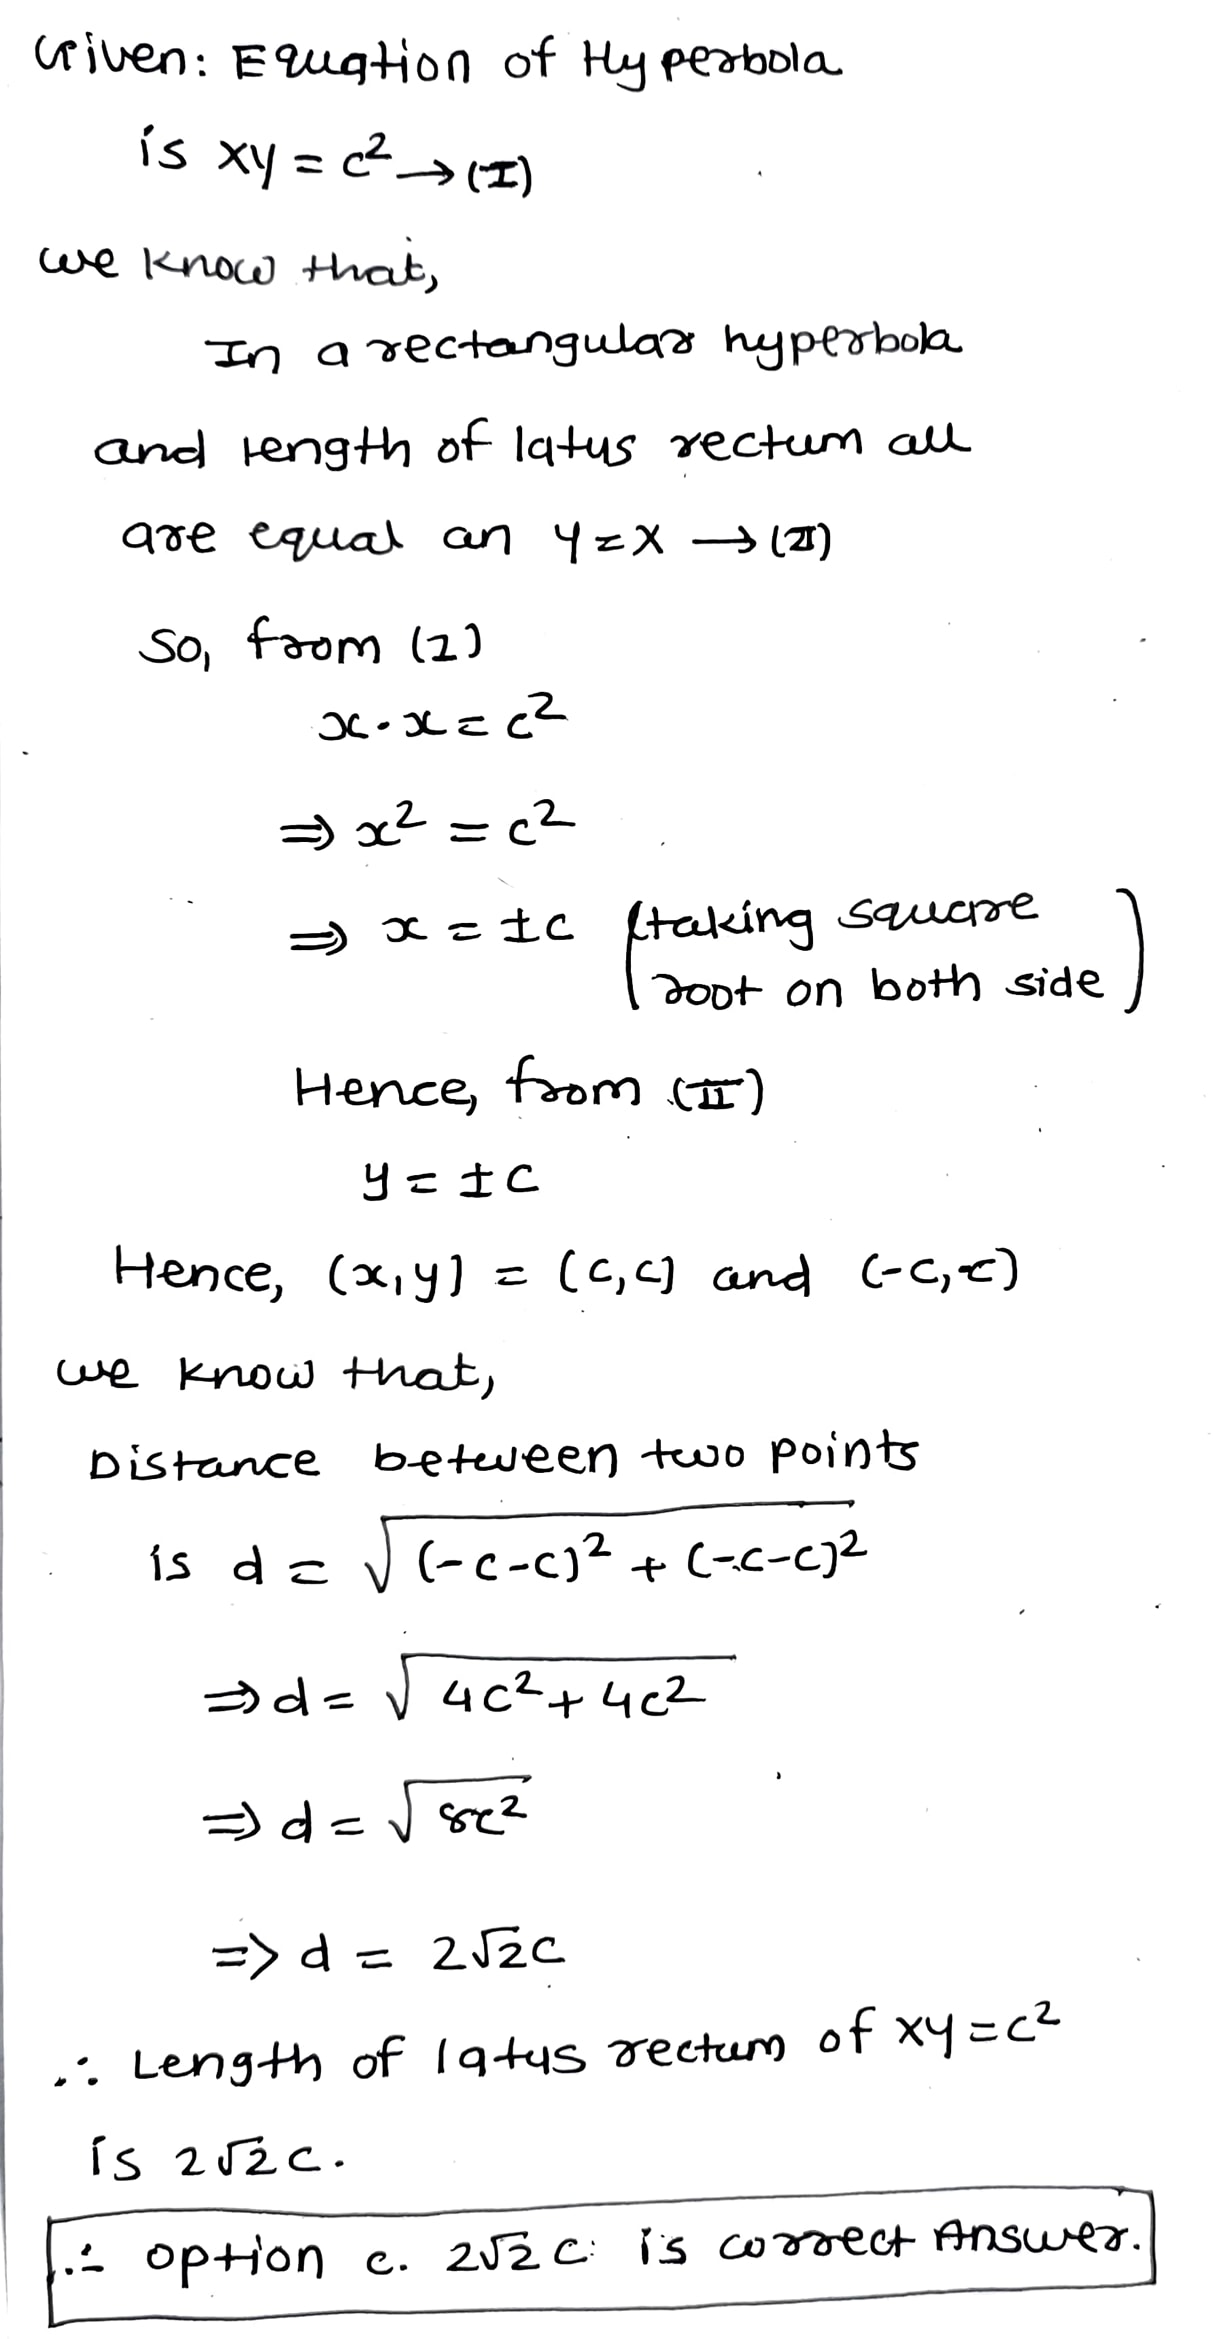 Given: Equation of Hyperbola
is xy = c² → (I)
we know that,
In a rectangular hyperbola
and length of latus rectum all
are equal an y = x → (II)
So, from (1)
x·x = c²
⇒ x² = c²
⇒ x = ±c (taking square
root on both side)
Hence, from (II)
y = ±c
Hence, (x,y) = (c,c) and (-c,-c)
we know that,
Distance between two points
is d = √((-c-c)² + (-c-c)²)
⇒ d = √(4c² + 4c²)
⇒ d = √(8c²)
=> d = 2√2c
∴ Length of latus rectum of xy = c²
is 2√2c.
∴ option c. 2√2c is correct Answer.